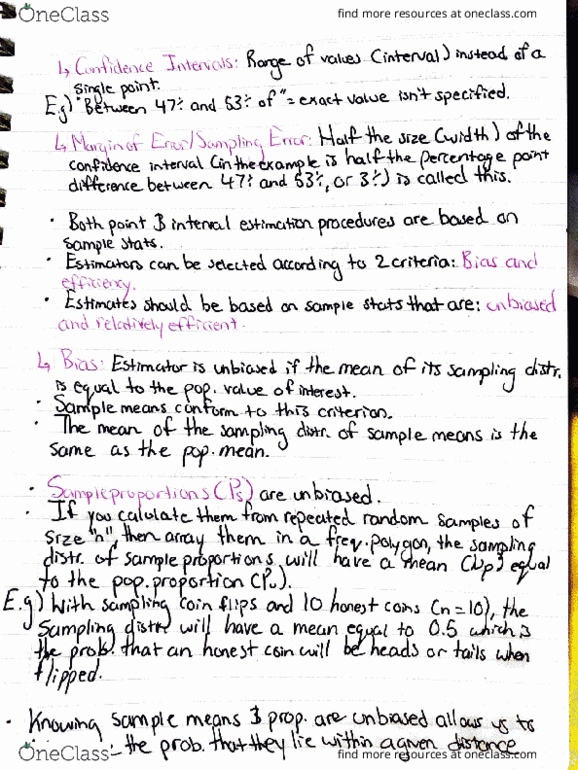 OneClass
find more resources at oneclass.com
↳ Confidence Intervals: Range of values (interval) instead of a
single point.
E.g) "Between 47% and 53% of" = exact value isn't specified.
↳ Margin of Error/Sampling Error: Half the size (width) of the
confidence interval (in the example is half the percentage point
difference between 47% and 53%, or 3%) is called this.
• Both point & interval estimation procedures are based on
sample stats.
• Estimators can be selected according to 2 criteria: Bias and
efficiency.
• Estimates should be based on sample stats that are: unbiased
and relatively efficient.
↳ Bias: Estimator is unbiased if the mean of its sampling distr.
is equal to the pop. value of interest.
• Sample means conform to this criterion.
• The mean of the sampling distr. of sample means is the
same as the pop. mean.
• Sample proportions (Ps) are unbiased.
• If you calulate them from repeated random samples of
size "n", then array them in a freq. polygon, the sampling
distr. of sample proportions will have a mean (μp) equal
to the pop. proportion (Pu).
E.g) With sampling coin flips and 10 honest coins (n=10), the
sampling distr will have a mean equal to 0.5 which is
the prob. that an honest coin will be heads or tails when
flipped.
• Knowing sample means & prop. are unbiased allows us to
the prob. that they lie within a given distance
OneClass
find more resources at oneclass.com